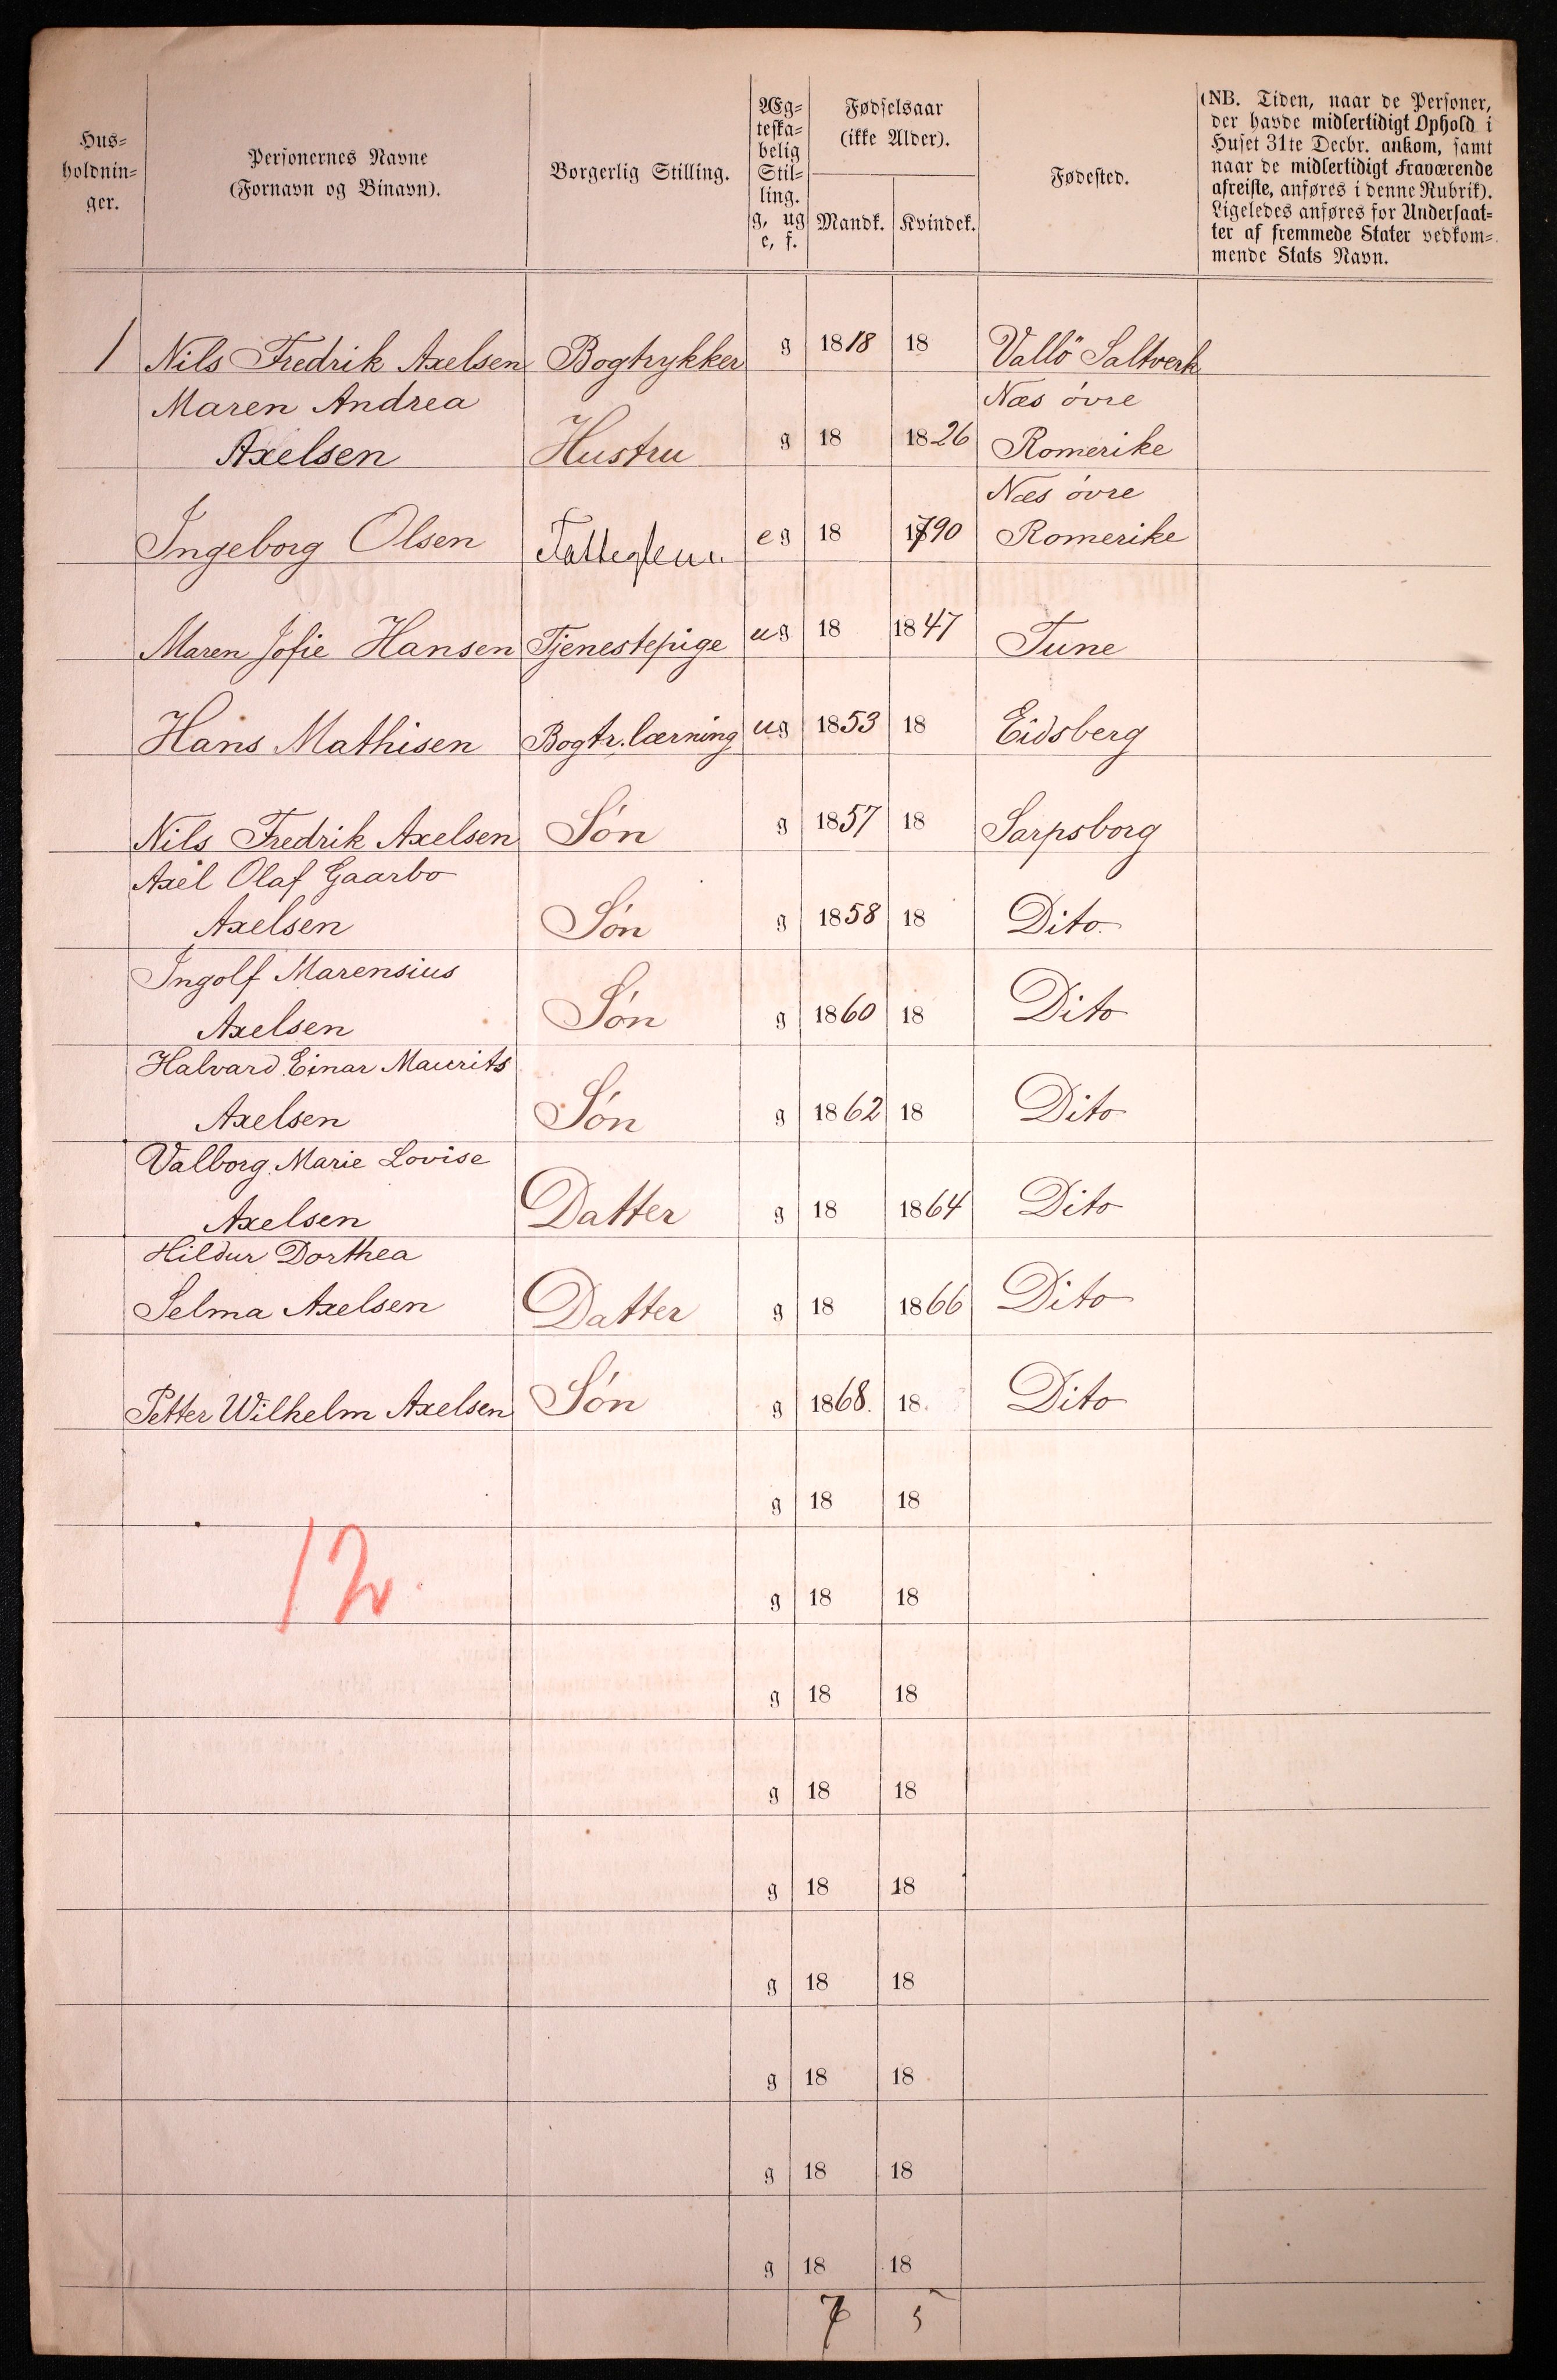 Hus=
holdnin=
ger.
Personernes Navne
(Fornavn og Binavn).
Borgerlig Stilling.
Æg=
teska=
belig
Stil=
ling.
g, ug
e, f.
Fødselsaar
(ikke Alder).
Mandk. Kvindek.
Fødested.
(NB. Tiden, naar de Personer,
der havde midlertidigt Ophold i
Huset 31te Decbr. ankom, samt
naar de midlertidigt fraværende
afreiste, anføres i denne Rubrik).
Ligeledes anføres for Undersaat=
ter af fremmede Stater vedkom=
mende Stats Navn.
1 Nils Fredrik Axelsen Bogtrykker g 1818 18 Vallö Saltverk
Maren Andrea Næs óvre
Axelsen Hustru g 18 1826 Romerike
Næs óvre
Ingeborg Olsen eg 18 1790 Romerike
Maren Jofie Hansen Tjenestepige ug 18 1847 Tune
Hans Mathisen Bogtr. lærning ug 1853 18 Eidsberg
Nils Fredrik Axelsen Són g 1857 18 Sarpsborg
Axel Olaf Gaarbo
Axelsen Són g 1858 18 Dito
Ingolf Marensius
Axelsen Són g 1860 18 Dito
Halvard Einar Maurits
Axelsen Són g 1862 18 Dito
Valborg Marie Lovise
Axelsen Datter g 18 1864 Dito
Hildur Dorthea
Selma Axelsen Datter g 18 1866 Dito
Petter Wilhelm Axelsen Són g 1868. 18 Dito
g 18 18
12
g 18 18
g 18 18
g 18 18
g 18 18
g 18 18
g 18 18
g 18 18
g 18 18
7 5